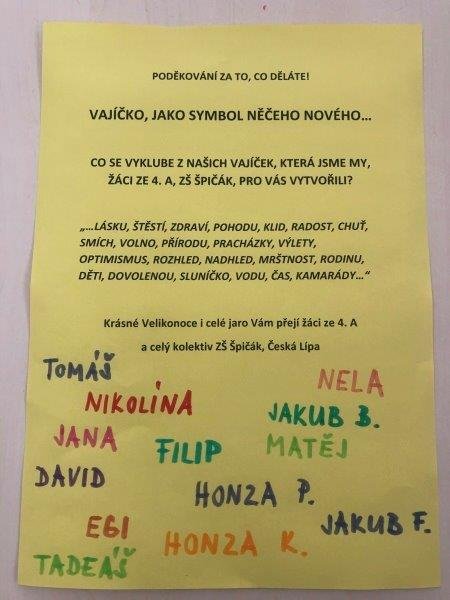 PODĚKOVÁNÍ ZA TO, CO DĚLÁTE!
VAJÍČKO, JAKO SYMBOL NĚČEHO NOVÉHO...
CO SE VYKLUBE Z NAŠICH VAJÍČEK, KTERÁ JSME MY,
ŽÁCI ZE 4. A, ZŠ ŠPIČÁK, PRO VÁS VYTVOŘILI?
„...LÁSKU, ŠTĚSTÍ, ZDRAVÍ, POHODU, KLID, RADOST, CHUŤ,
SMÍCH, VOLNO, PŘÍRODU, PRACHÁZKY, VÝLETY,
OPTIMISMUS, ROZHLED, NADHLED, MRŠTNOST, RODINU,
DĚTI, DOVOLENOU, SLUNÍČKO, VODU, ČAS, KAMARÁDY...“
Krásné Velikonoce i celé jaro Vám přejí žáci ze 4. A
a celý kolektiv ZŠ Špičák, Česká Lípa
TOMÁŠ
NELA
NIKOLÍNA
JAKUB B.
JANA
FILIP
MATĚJ
DAVID
HONZA P.
EGI
JAKUB F.
HONZA K.
TADEÁŠ